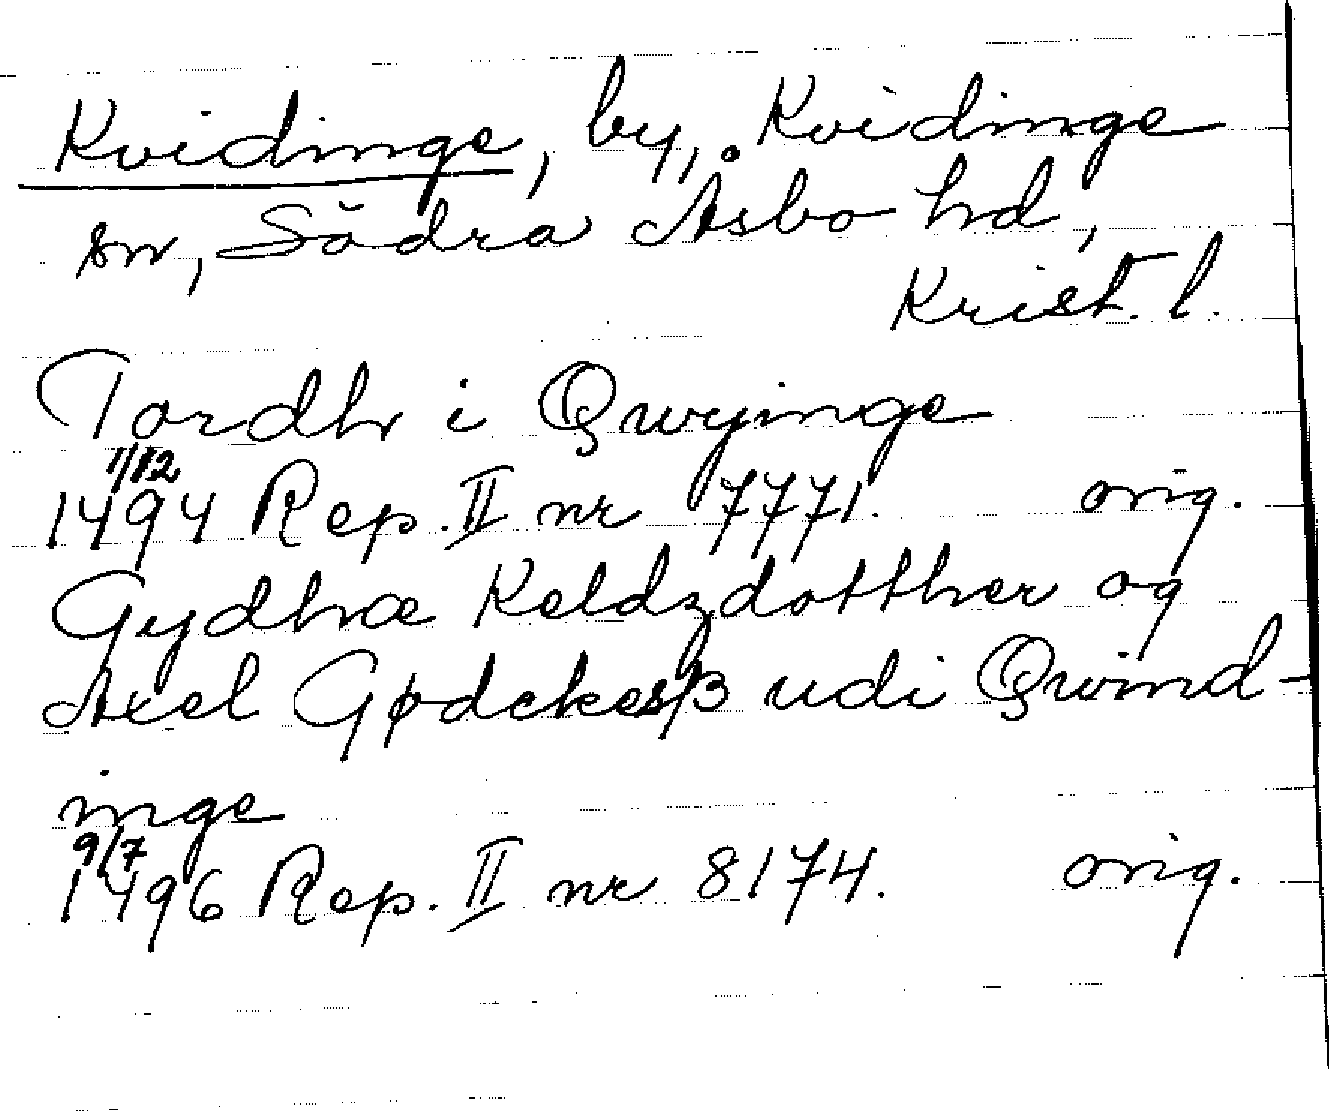 Kvidinge, by, Kvidinge
sn, Södra Åsbo hd,
Krist. l.
Tordhr i Qwyinge
1/12
1494 Rep. II nr 7771. orig.
Gydhræ Keldzdotther og
Axel Gødckesß udi Qwind-
inge
9/7
1496 Rep. II nr 8174. orig.